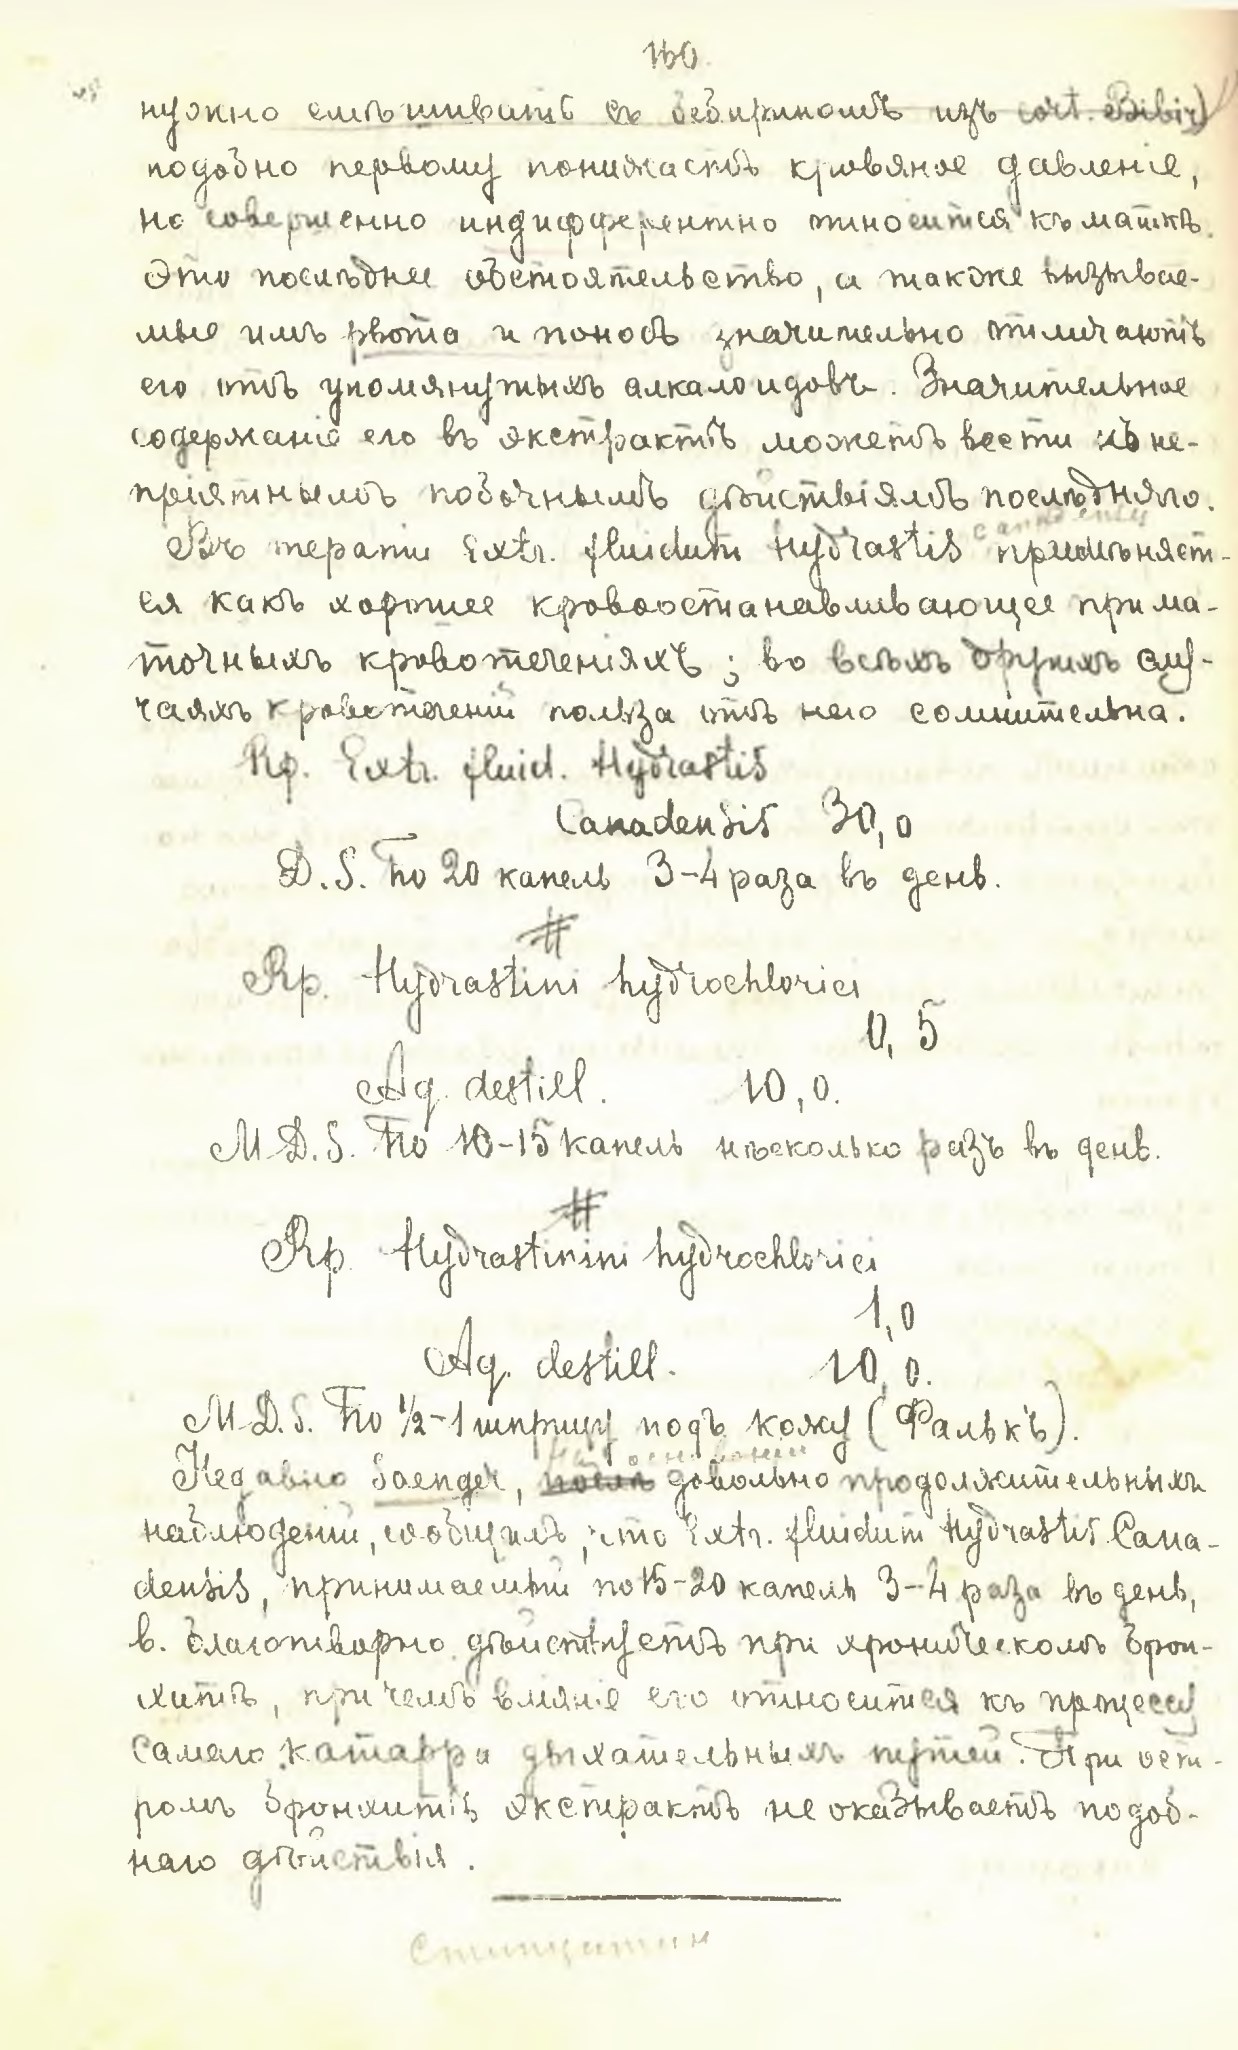 160.
нужно смѣшивать съ бебириномъ изъ cort. Bibir)
подобно первому понижаетъ кровяное давленіе,
но совершенно индифферентно относится къ маткѣ.
Это послѣднее обстоятельство, а также вызывае-
мые имъ рвота и поносъ значительно отличаютъ
его отъ упомянутыхъ алкалоидовъ. Значительное
содержаніе его въ экстрактѣ можетъ вести къ не-
пріятнымъ побочнымъ дѣйствіямъ послѣдняго.
Въ терапіи Extr. fluidum Hydrastis примѣняет-
ся какъ хорошее кровоостанавливающее при ма-
точныхъ кровотеченіяхъ; во всѣхъ другихъ слу-
чаяхъ кровотеченій польза отъ него сомнительна.
Rp. Extr. fluid. Hydrastis
Canadensis 30,0
D.S. По 20 капель 3-4 раза въ день.
#
Rp. Hydrastini hydrochlorici
0,5
Aq. destill. 10,0.
M.D.S. По 10-15 капель нѣсколько разъ въ день.
#
Rp. Hydrastinini hydrochlorici
1,0
Aq. destill. 10,0.
M.D.S. По ½-1 шприцу подъ кожу (Фалькъ).
на основаніи
Недавно Saenger, послѣ довольно продолжительныхъ
наблюденій, сообщилъ, что Extr. fluidum Hydrastis Cana-
densis, принимаемый по 15-20 капель 3-4 раза въ день,
в. благотворно дѣйствуетъ при хроническомъ брон-
хитѣ, причемъ вліяніе его относится къ процессу
самаго катарра дыхательныхъ путей. При ост-
ромъ бронхитѣ экстрактъ не оказываетъ подоб-
наго дѣйствія.
Стиптицин